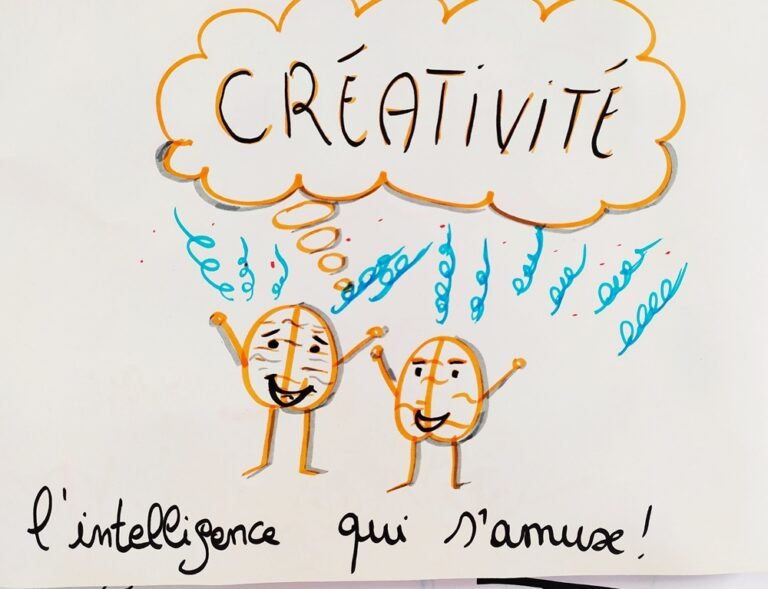 CRÉATIVITÉ
l'intelligence qui s'amuse!